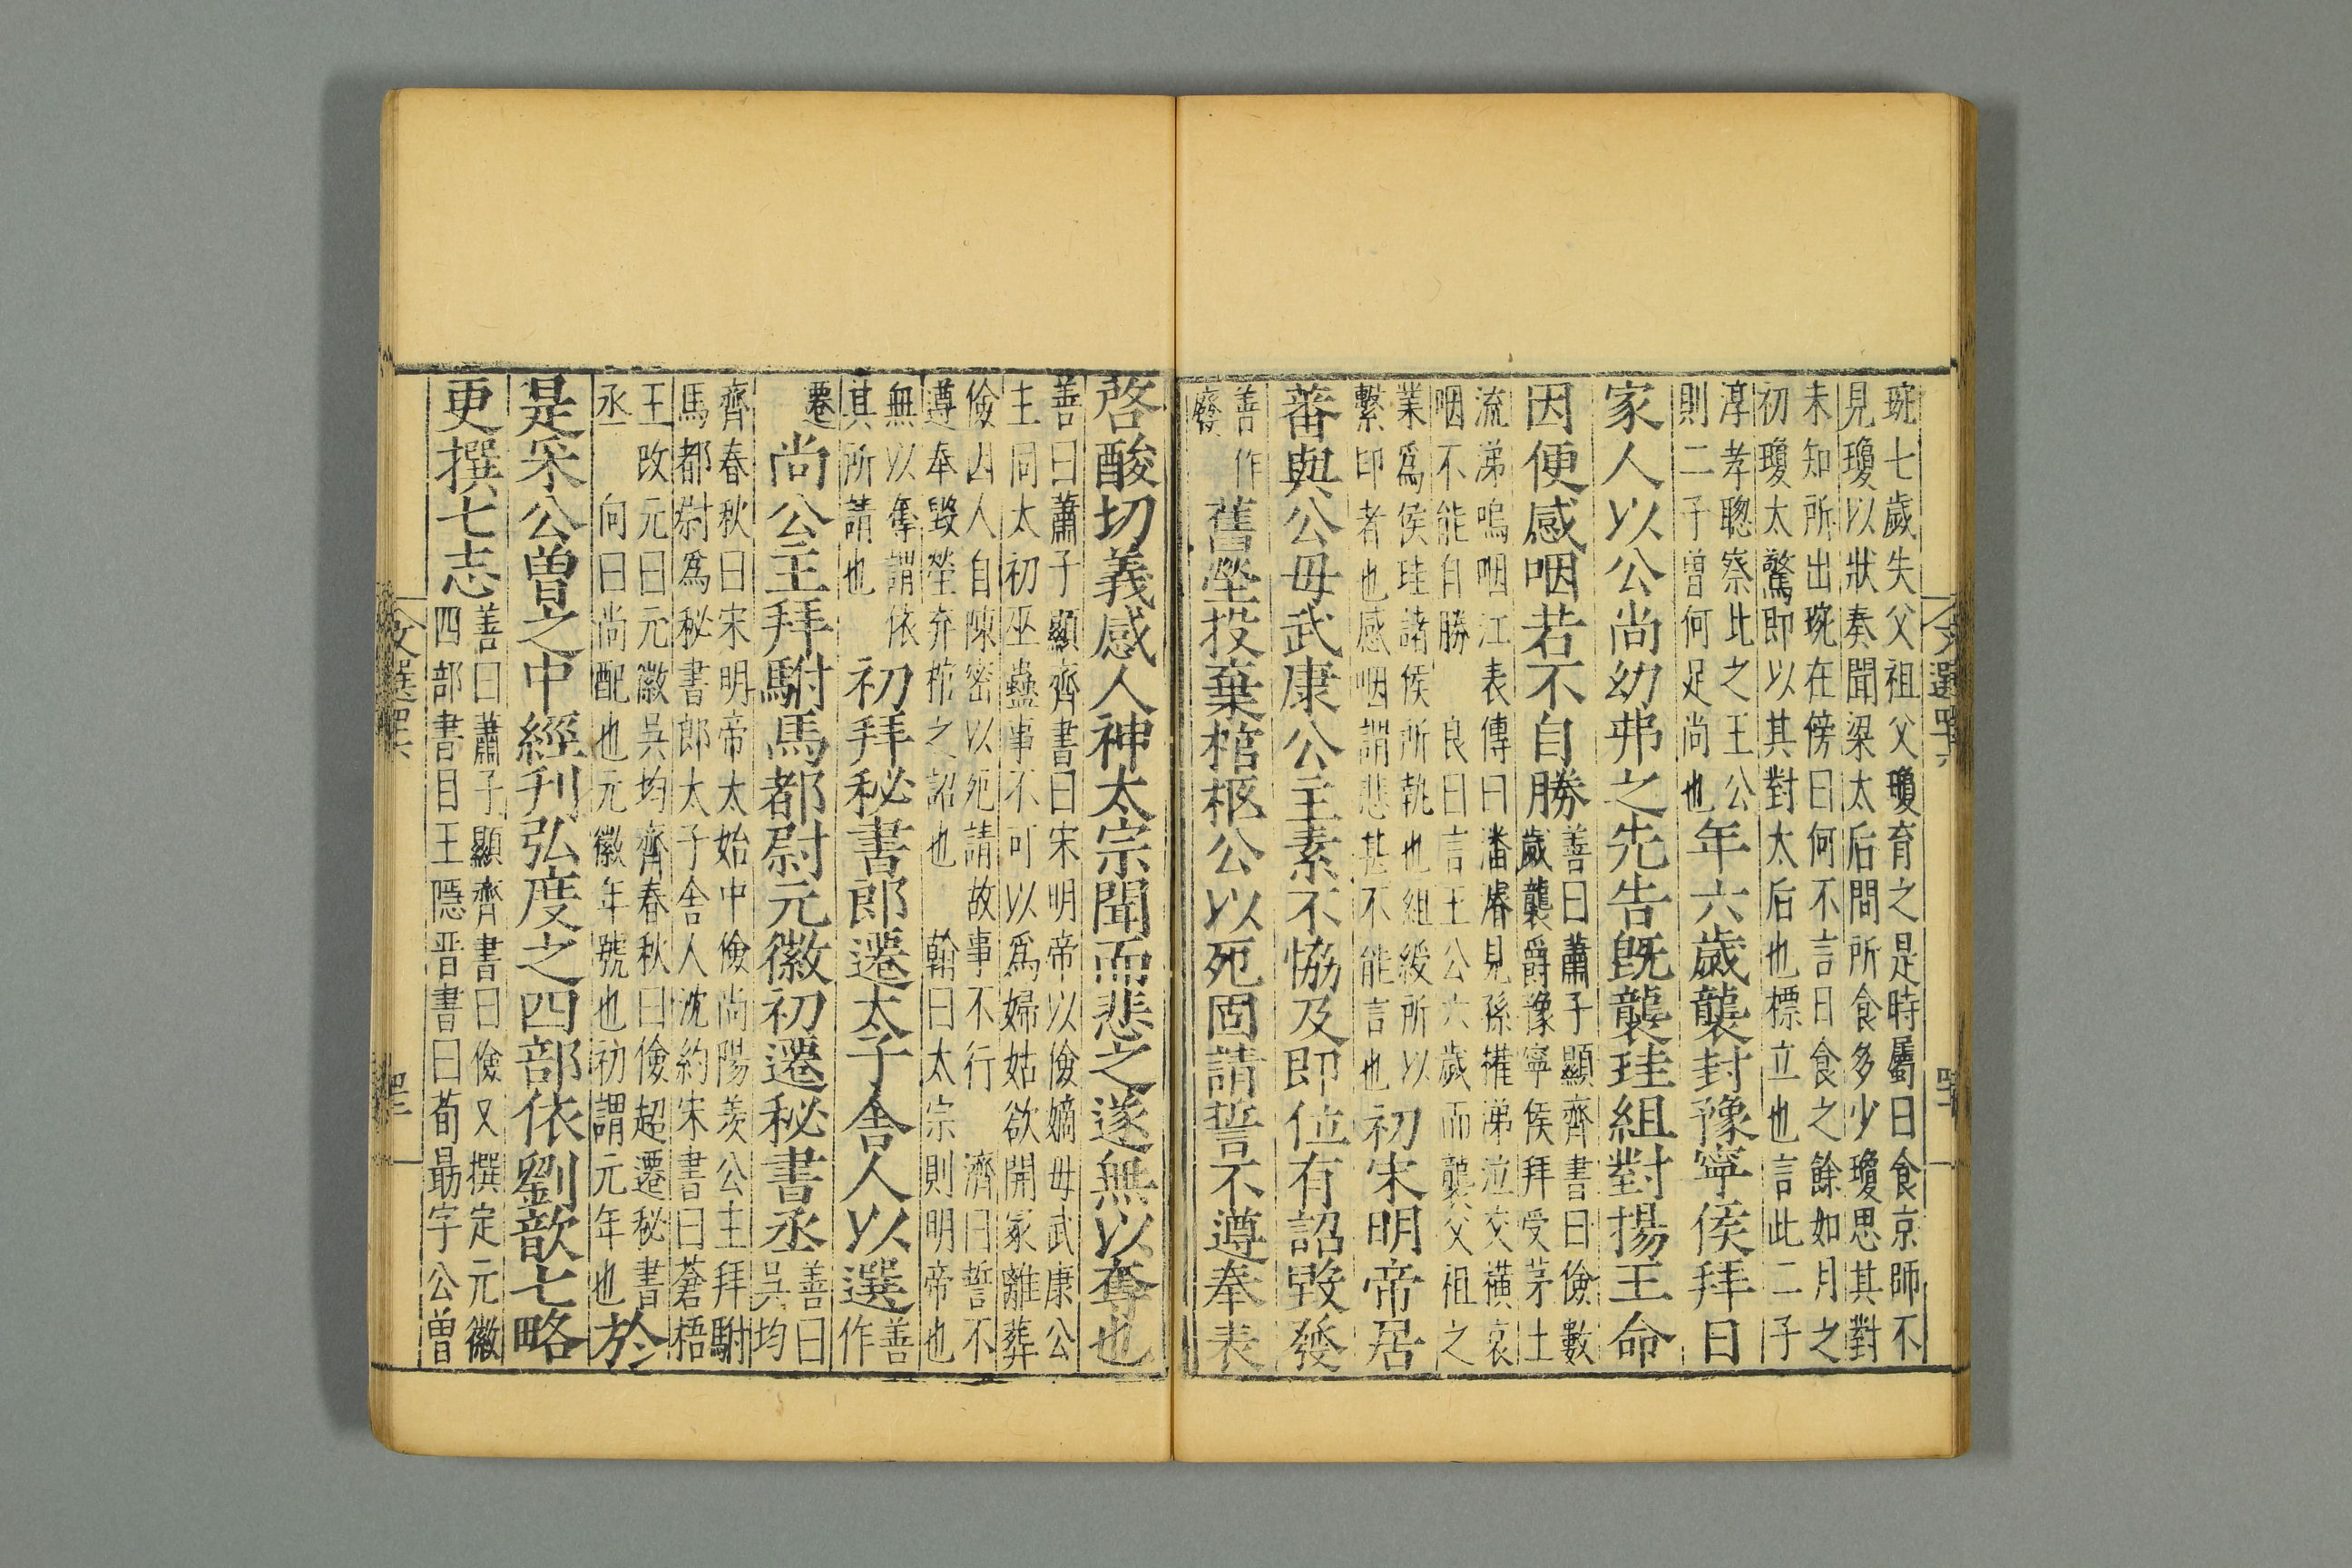 琬七歲失父祖父瓊育之是時屬日食京師不
見瓊以狀奏聞梁太后問所食多少瓊思其對
未知所出琬在傍曰何不言日食之餘如月之
初瓊太驚即以其對太后也標立也言此二子
淳孝聰察比之王公
則二子曾何足尚也
年六歲襲封豫寧侯拜日
家人以公尚幼弗之先告既襲珪組對揚王命
因便感咽若不自勝
善曰蕭子顯齊書曰儉數
歲襲爵豫寧侯拜受茅土
流涕嗚咽江表傳曰潘濬見孫權涕泣交橫哀
咽不能自勝 良曰言王公六歲而襲父祖之
業爲侯珪諸侯所執也組綬所以
繫印者也感咽謂悲甚不能言也
初宋明帝居
蕃與公母武康公主素不恊及即位有詔毀發
善作
廢
舊塋投棄棺柩公以死固請誓不遵奉表
啓酸切義感人神太宗聞而悲之遂無以奪也
善曰蕭子顯齊書曰宋明帝以儉嫡母武康公
主同太初巫蠱事不可以爲婦姑欲開冢離葬
儉因人自陳密以死請故事不行 濟曰誓不
遵奉毀塋弃棺之詔也 翰曰太宗則明帝也
無以奪謂依
其所請也
初拜秘書郎遷太子舍人以選
善
作
遷
尚公主拜駙馬都尉元徽初遷秘書丞
善曰
吳均
齊春秋曰宋明帝太始中儉尚陽羨公主拜駙
馬都尉爲秘書郎太子舍人沈約宋書曰蒼梧
王改元曰元徽吳均齊春秋曰儉超遷秘書
丞 向曰尚配也元徽年號也初謂元年也
於
是采公曾之中經刋弘度之四部依劉歆七略
更撰七志
善曰蕭子顯齊書曰儉又撰定元徽
四部書目王隱晋書曰荀勗字公曾
文選